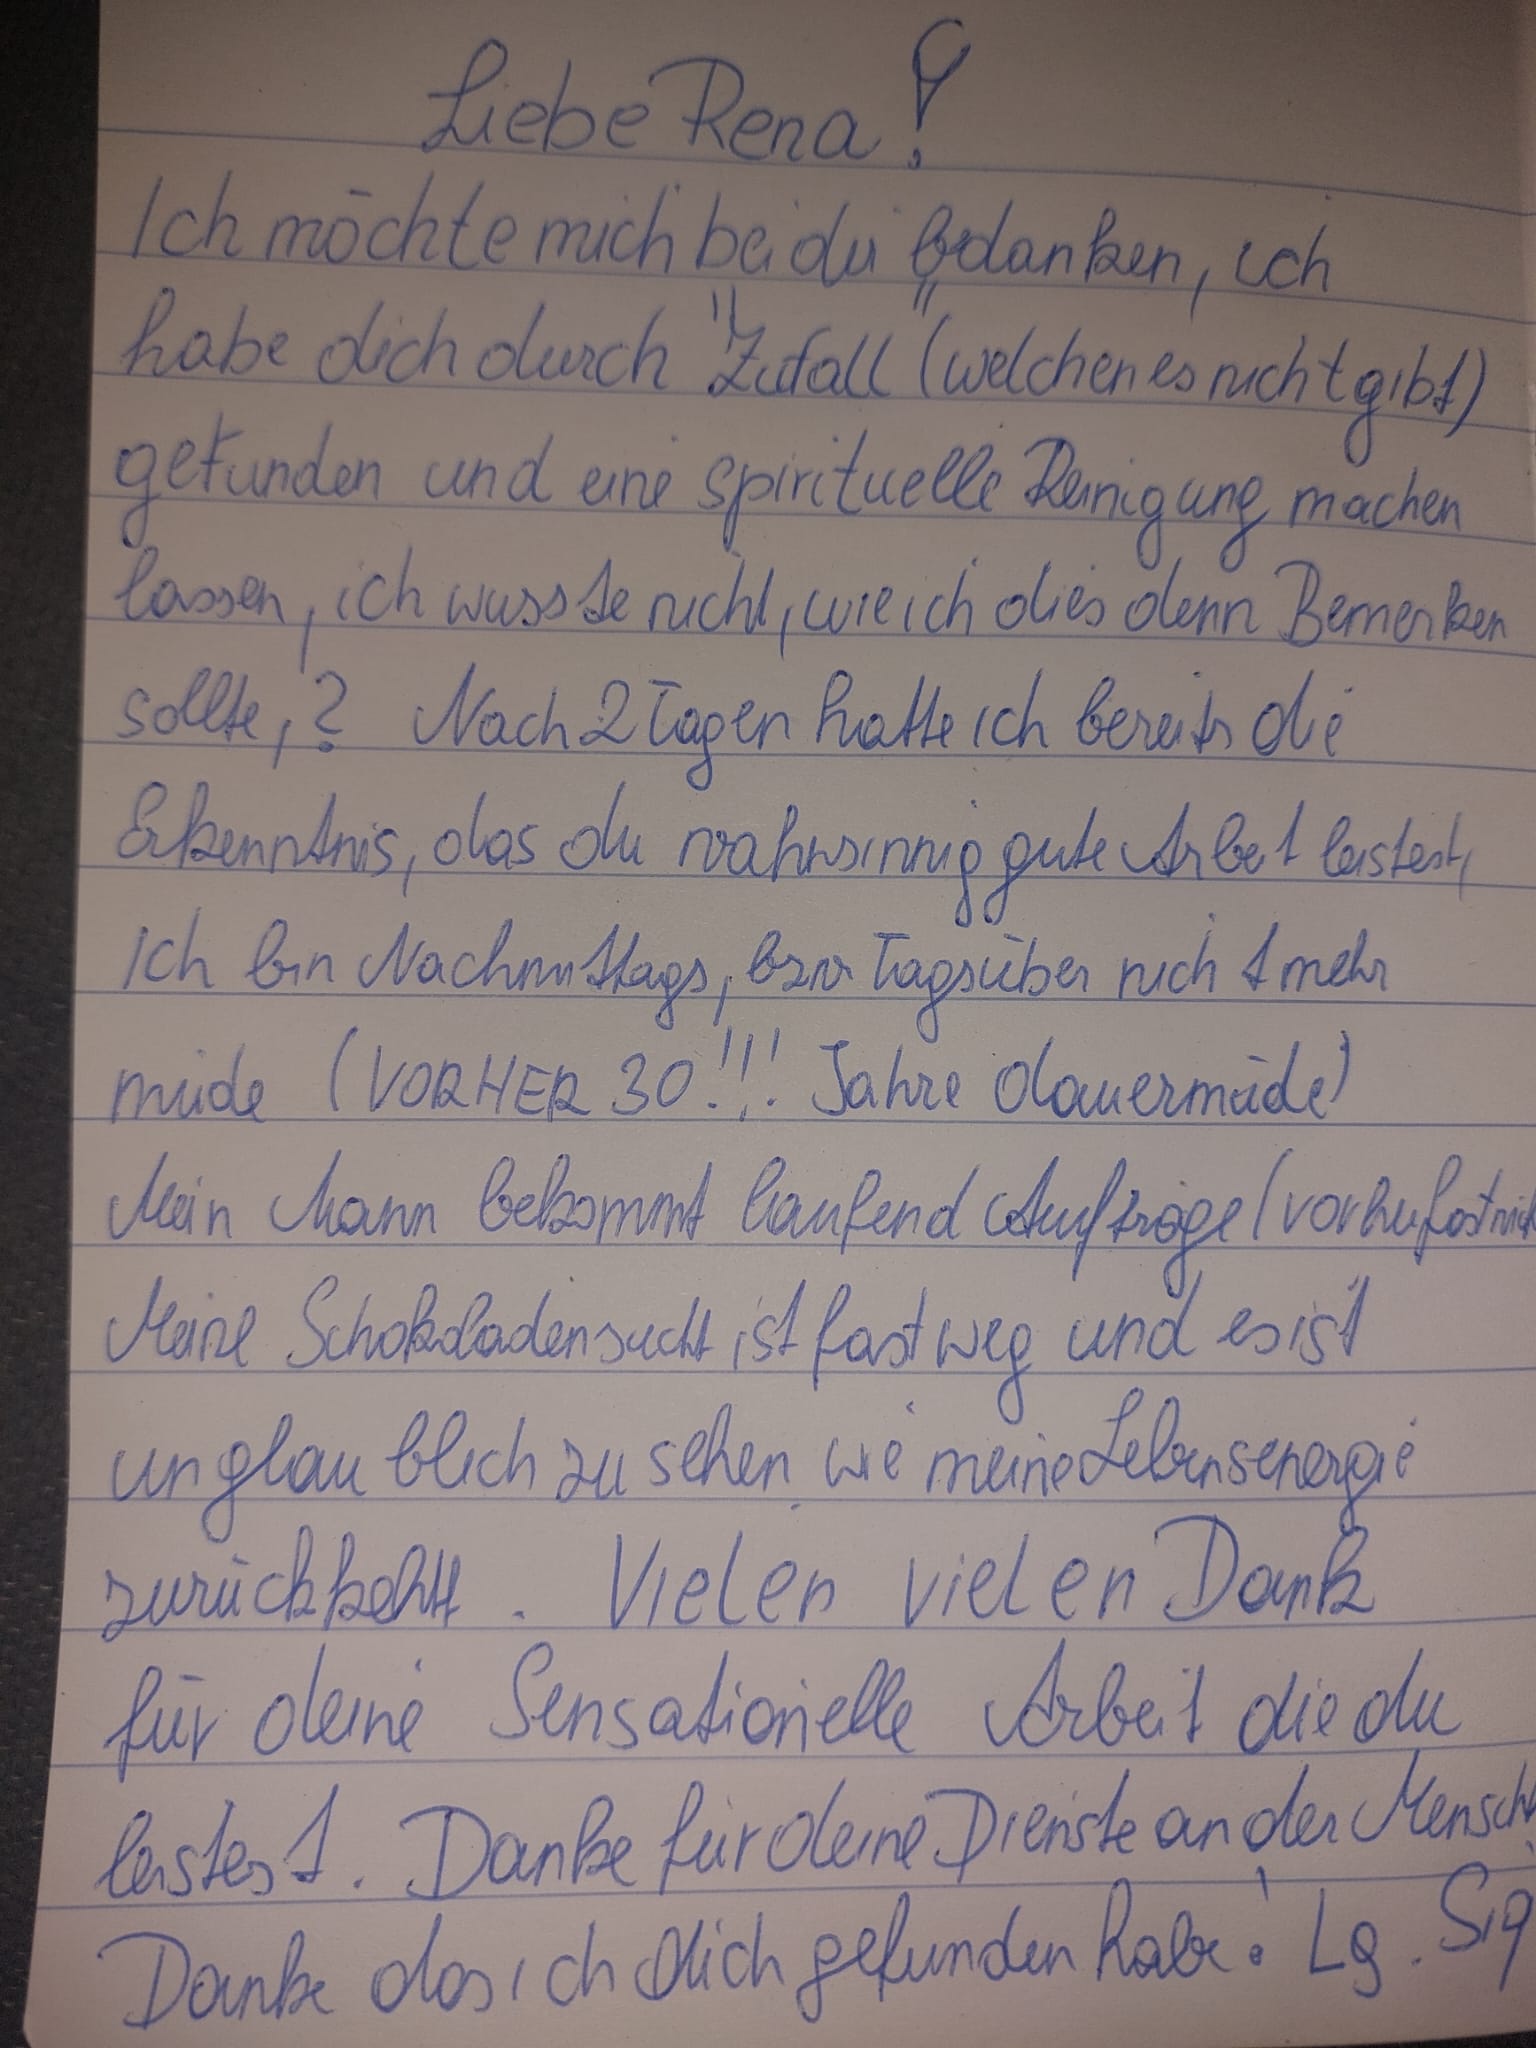 Liebe Rena!
Ich möchte mich bei dir bedanken, ich
habe dich durch "Zufall" (welchen es nicht gibt)
gefunden und eine spirituelle Reinigung machen
lassen, ich wusste nicht, wie ich dies denn Bemerken
sollte,? Nach 2 Tagen hatte ich bereits die
Erkenntnis, das du wahnsinnig gute Arbeit leistest,
ich bin Nachmittags, bzw Tagsüber nicht mehr
müde (VORHER 30!!! Jahre dauermüde)
Mein Mann bekommt laufend Aufträge (vorher fast
Meine Schokoladensucht ist fast weg und es ist
unglaublich zu sehen wie meine Lebensenergie
zurückkehrt. Vielen vielen Dank
für deine Sensationelle Arbeit die du
leistest. Danke für deine Dienste an der
Danke das ich dich gefunden habe! Lg.